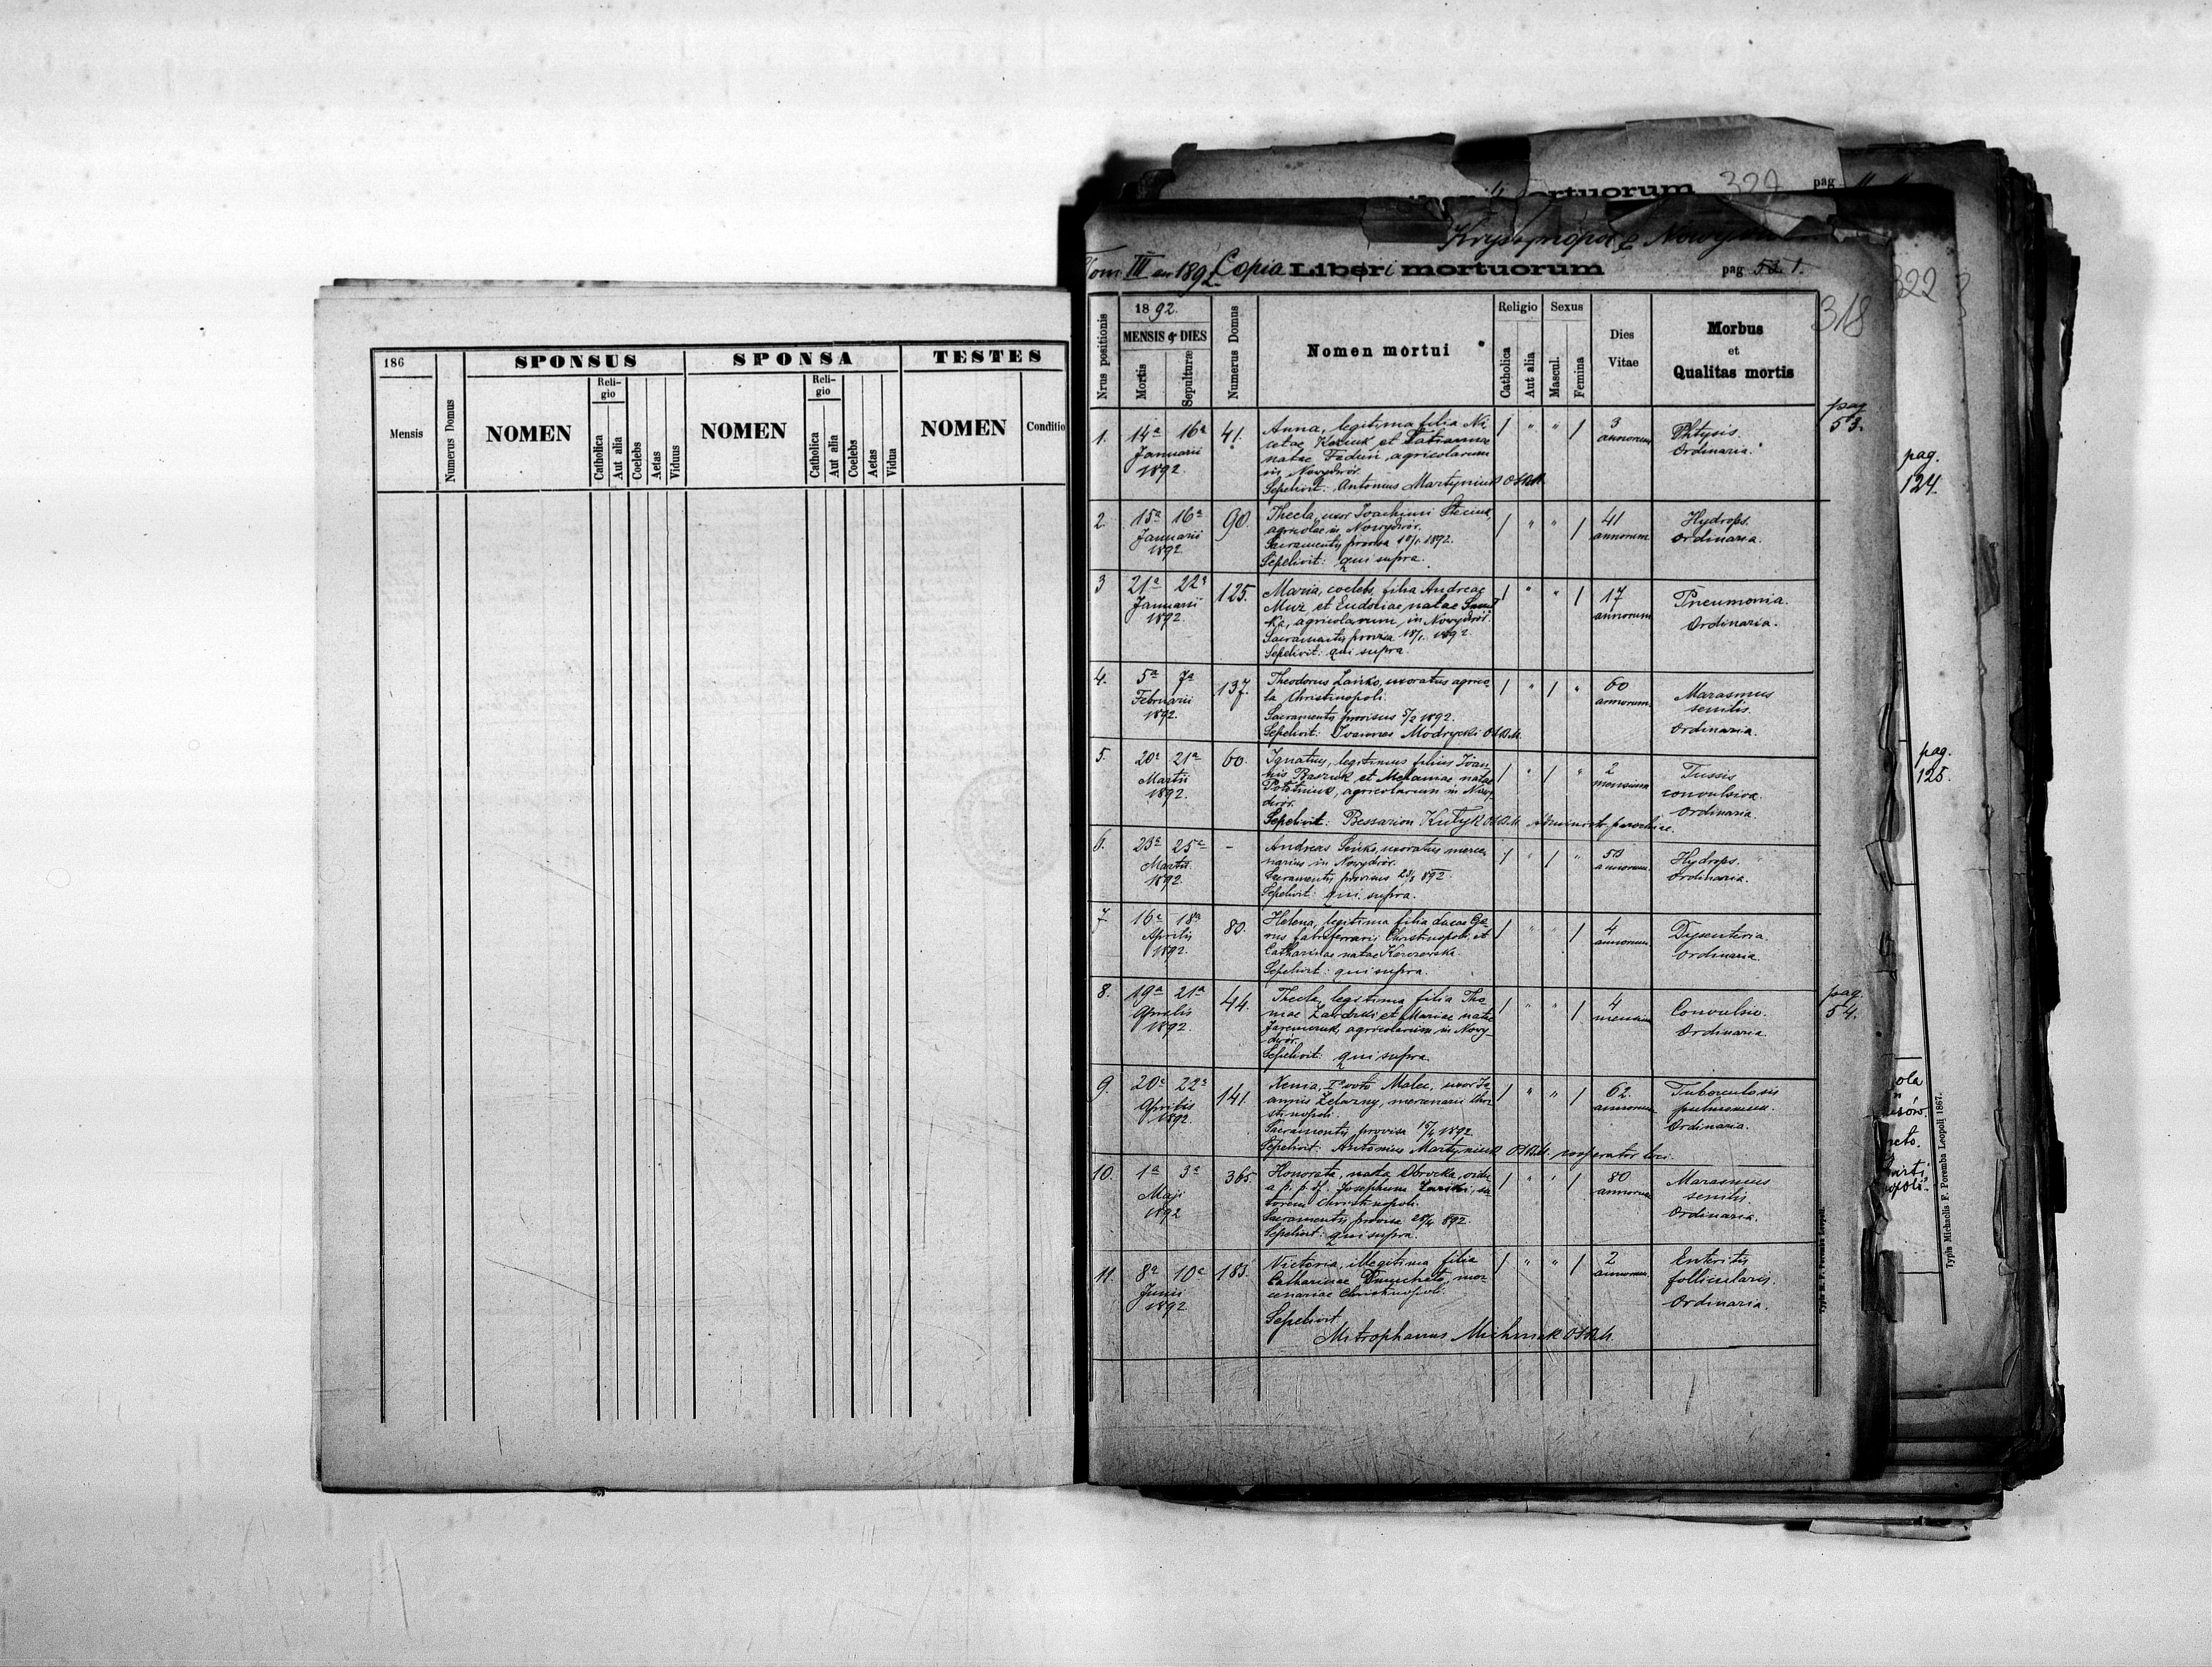 186
SPONSUS
SPONSA
TESTES
Mensis
Numerus Domus
NOMEN
Reli-
gio
Catholica
Aut alia
Coelebs
Aetas
Viduus
NOMEN
Reli-
gio
Catholica
Aut alia
Coelebs
Aetas
Vidua
NOMEN
Conditio
ortuorum
327
pag
Tom III an 1892 Copia Liberi mortuorum
pag 53 1.
318
322
Nrus positionis
1892.
MENSIS & DIES
Mortis
Sepulturæ
Numerus Domus
Nomen mortui
Religio
Catholica
Aut alia
Sexus
Mascul.
Femina
Dies
Vitae
Morbus
et
Qualitas mortis
pag
53.
1. 14a 16a 41. Anna, legitima filia Ni-
Januarii
1892.
cetae Koziuk et Tatiannae
natae Feduń, agricolarum
in Nowydwór.
Sepelivit: Antonius Martyniuk OSBM.
3
annorum
Phtysis.
Ordinaria.
2. 15a 16a 90. Thecla, uxor Joachimi Steciuk,
Januarii
1892
agricolae in Nowydwór.
Sacramentis provisa 10/1 1892.
Sepelivit: qui supra.
41
annorum
Hydrops.
Ordinaria.
3 21a 22a 125. Maria, coelebs, filia Andreae
Januarii
1892.
Muz et Eudociae natae
agricolarum in Nowydwór.
Sacramentis provisa 18/1 1892
Sepelivit: qui supra.
17
annorum
Pneumonia.
Ordinaria.
4. 5a 7a 137. Theodorus Lańko, uxoratus agrico-
Februarii
1892.
la Christinopoli.
Sacramentis provisus 5/2 1892.
Sepelivit: Ioannes Modrycki OSBM.
60
annorum
Marasmus
senilis.
Ordinaria.
5. 20a 21a 60. Ignatius, legitimus filius Ioan-
Martii
1892.
nis Raszuk et Melaniae natae
Potótniuk, agricolarum in Nowy-
dwór.
Sepelivit: Bessarion Kułyk OSBM. administr. parochiae.
2
mensium
Tussis
convulsiva.
Ordinaria.
6. 23a 25a - Andreas Seńko, uxoratus merce-
Martii
1892.
narius in Nowydwór.
Sacramentis provisus 23/3 892.
Sepelivit: qui supra.
50
annorum
Hydrops.
Ordinaria.
7 16a 18a 80. Helena, legitima filia Lucae
Aprilis
1892.
fabriferrarii Christinopoli et
Catharinae natae Korczewska
Sepelivit: qui supra.
4
annorum
Dysenteria.
Ordinaria.
pag.
54.
8. 19a 21a 44. Thecla, legitima filia Tho-
Aprilis
1892.
mae et Mariae natae
Jaremczuk, agricolarum in Nowy-
dwór.
Sepelivit: qui supra.
4
mensium
Convulsio.
Ordinaria
9 20a 22a 141. Xenia, Io voto Malec, uxor Io-
Aprilis
1892.
annis Zelazny, mercenarii Chri-
stinopoli.
Sacramentis provisa 15/4 1892
Sepelivit: Antonius Martyniuk OSBM. cooperator loci.
62.
annorum
Tuberculosis
pulmonum.
Ordinaria.
10. 1a 3a 365. Honorata, nata Obrocka, vidu-
Maji
1892
a p. p. df. Josephum su-
torem Christinopoli.
Sacramentis provisa 28/4 892.
Sepelivit: qui supra.
80
annorum
Marasmus
senilis.
Ordinaria.
11 8a 10a 183. Victoria, illegitima filia
Junii
1892
Catharinae mer-
cenariae Christinopoli.
Sepelivit
Mitrophanus OSBM.
2
annorum
Enteritis
follicularis.
Ordinaria.
pag.
124.
pag.
125.
Typis Michaelis F. Poremba Leopoli 1867.